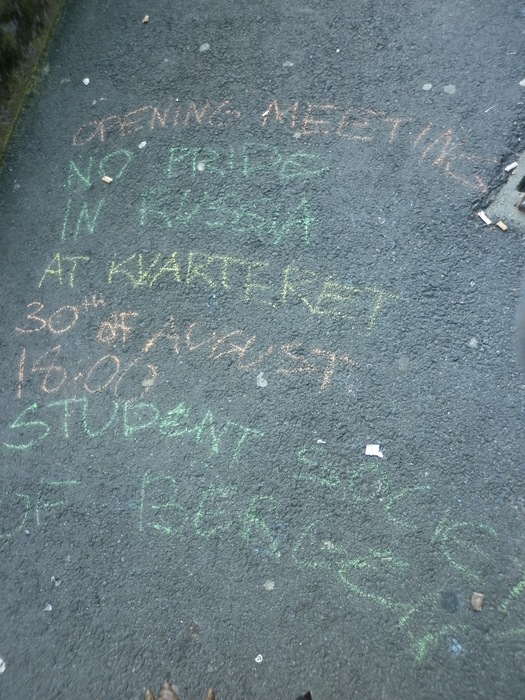 OPENING MEETING
NO PRIDE
IN RUSSIA
AT KVARTERET
30TH OF AUGUST
18.00
STUDENT SOCIET
OF BERGEN